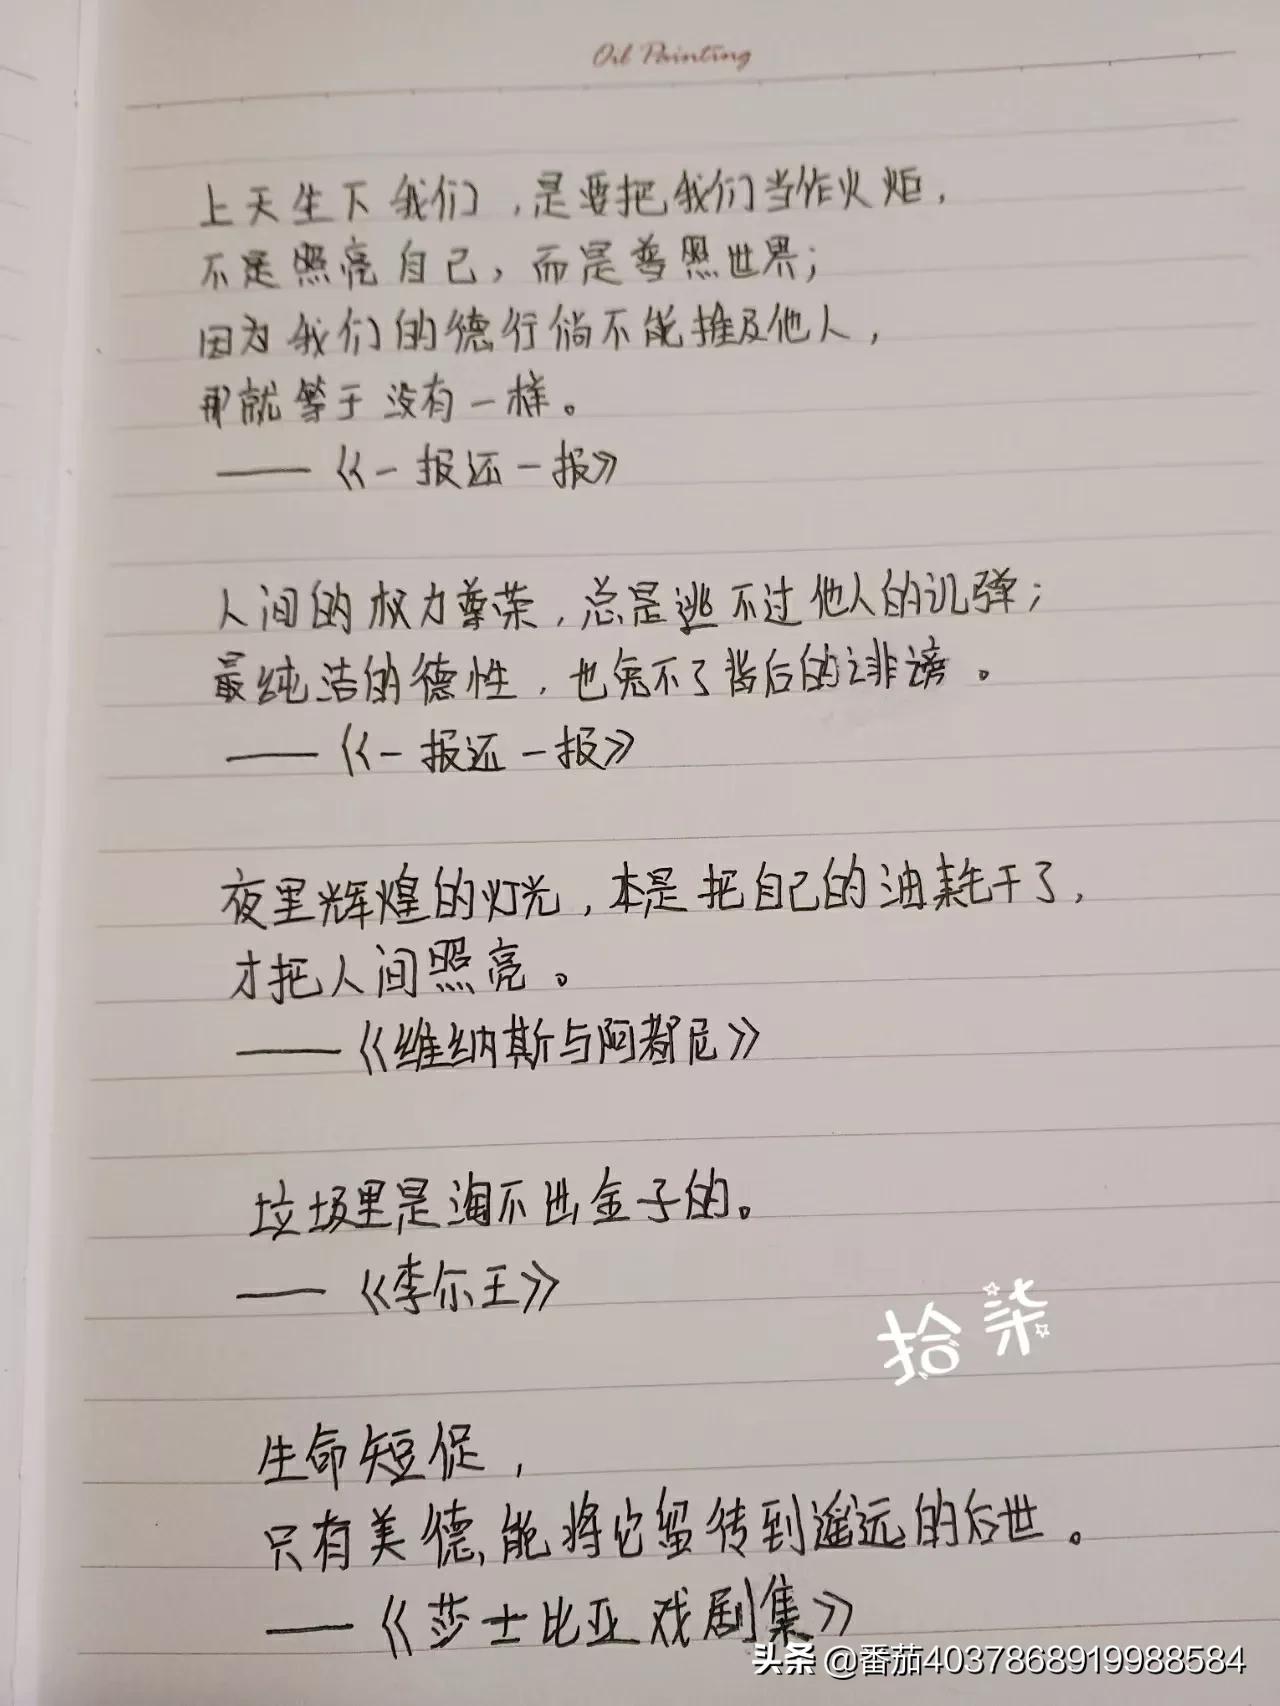 Oil Painting
上天生下我们，是要把我们当作火炬，
不是照亮自己，而是普照世界；
因为我们的德行倘不能推及他人，
那就等于没有一样。
——《一报还一报》
人间的权力尊荣，总是逃不过他人的讥弹；
最纯洁的德性，也免不了背后的诽谤。
——《一报还一报》
夜里辉煌的灯光，本是把自己的油耗干了，
才把人间照亮。
——《维纳斯与阿都尼》
垃圾里是淘不出金子的。
——《李尔王》
拾柒
生命短促，
只有美德能将它留传到遥远的后世。
——《莎士比亚戏剧集》
头条 @番茄4037868919988584